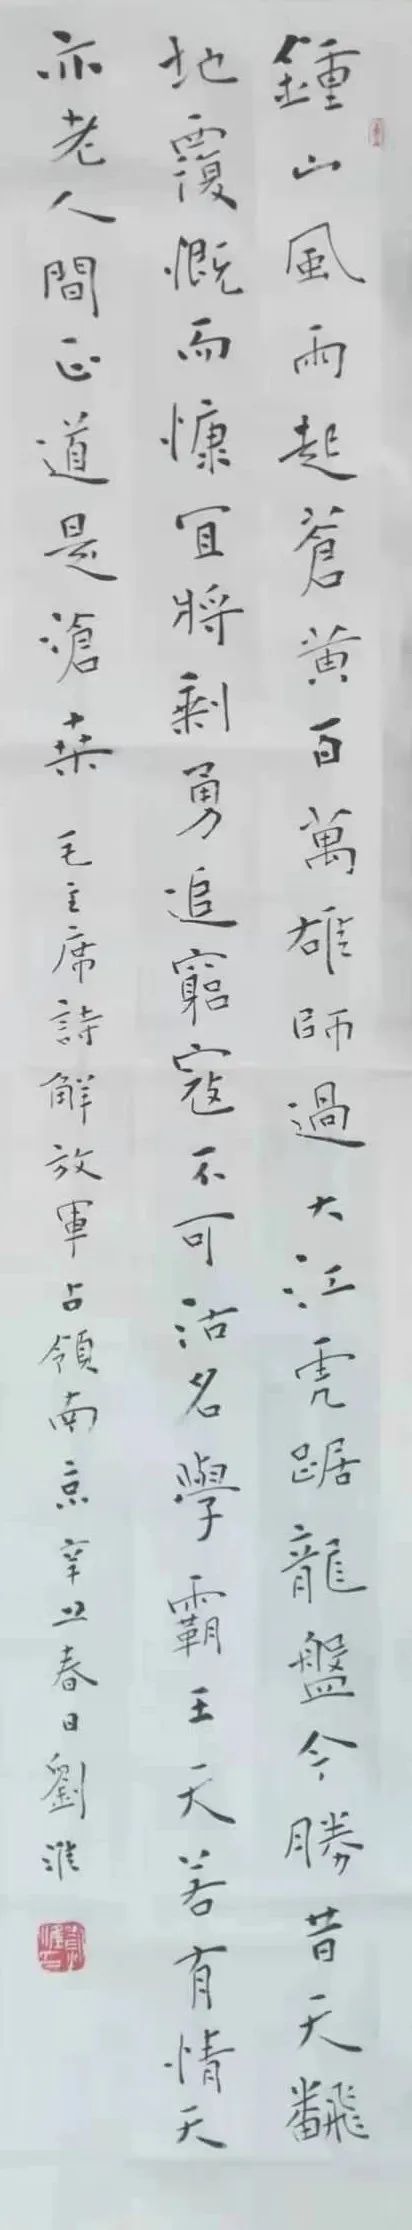 鍾山風雨起蒼黄百萬雄師過大江虎踞龍盤今勝昔天飜
地覆慨而慷宜將剩勇追窮寇不可沽名學霸王天若有情天
亦老人間正道是滄桑 毛主席詩解放軍占領南京辛丑春日劉淮